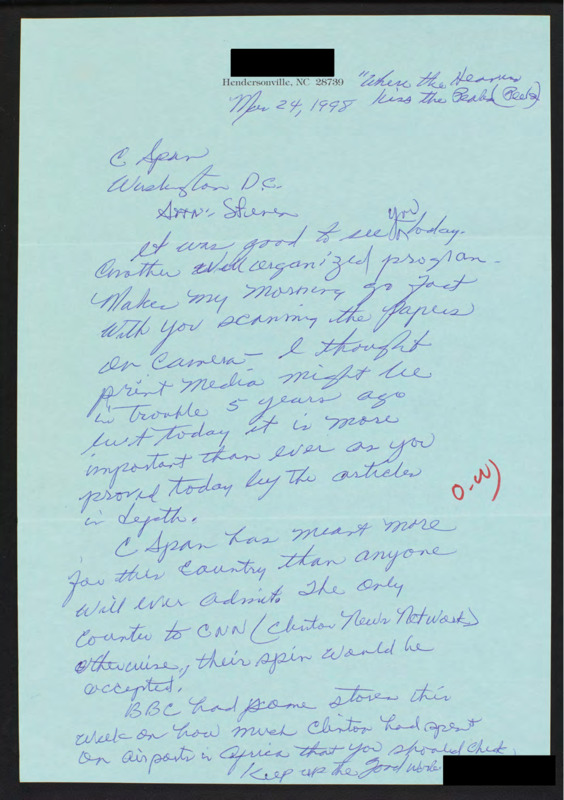 Hendersonville, NC 28739
"Where the Heavens
Kiss the Peaks (Peaks)
Mar 24, 1998
C Span
Washington D.C.
Attn: Steven
It was good to see you today.
Another well organized program -
Makes my morning go fast
with you scanning the papers
on camera - I thought
print media might be
in trouble 5 years ago
but today it is more
important than ever as you
proved today by the articles
in depth.
O-W)
C Span has meant more
for this country than anyone
will ever admit. The only
counter to CNN (Clinton News Network)
otherwise, their spin would be
accepted.
BBC had some stories this
week on how much Clinton had spent
on airports in Africa that you should check.
Keep up the good work